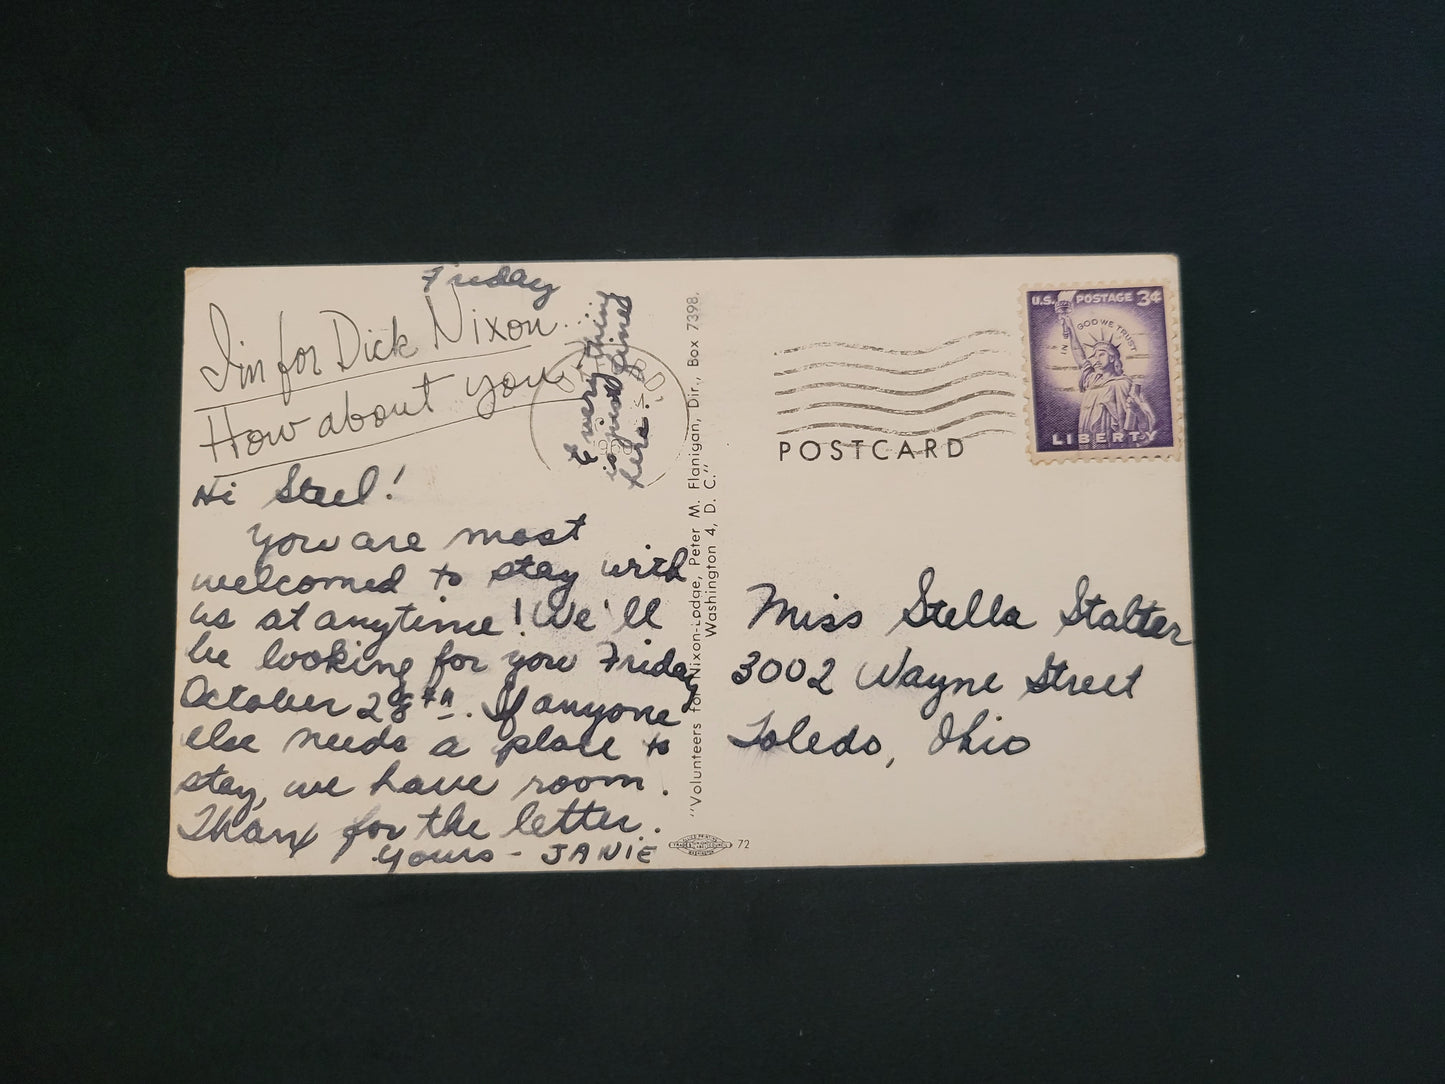 Friday
I'm for Dick Nixon....
How about you
Everything
is just fine
here!
Hi Stell!
You are most
welcomed to stay with
us at anytime! We'll
be looking for you Friday
October 28th. If anyone
else needs a place to
stay, we have room.
Thanx for the letter.
Yours - JANIE
"Volunteers for Nixon-Lodge, Peter M. Flanigan, Dir., Box 7398,
Washington 4, D. C."
72
U.S. POSTAGE 3¢
IN GOD WE TRUST
LIBERTY
POSTCARD
Miss Stella Stalter
3002 Wayne Street
Toledo, Ohio